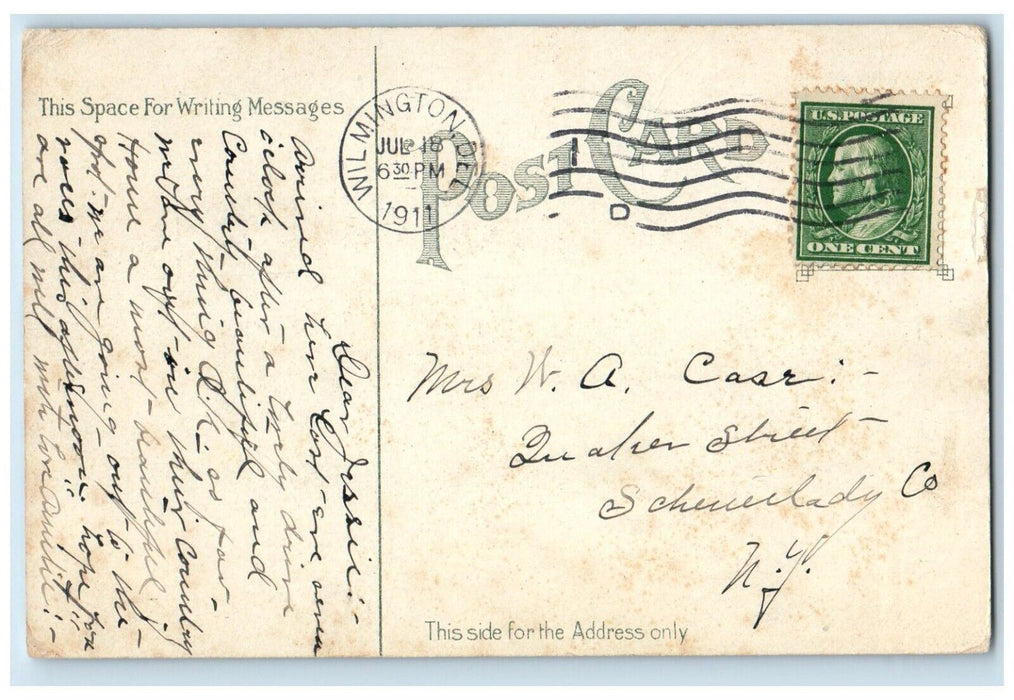 This Space For Writing Messages
Dear Jessie:-
Arrived here last eve seven
oclock after a lovely drive
Country beautiful and
every thing O.K. so far-
We are out in their Country
Home a most beautiful
spot we are going out to the
races this afternoon hope you
are all well with love Auntie:-
WILMINGTON, DEL.
JUL 18
6 30 PM
1911
D
POST CARD
U.S. POSTAGE
ONE CENT
Mrs W. A. Case:-
Quaker Street-
Schenectady Co
N.Y.
This side for the Address only